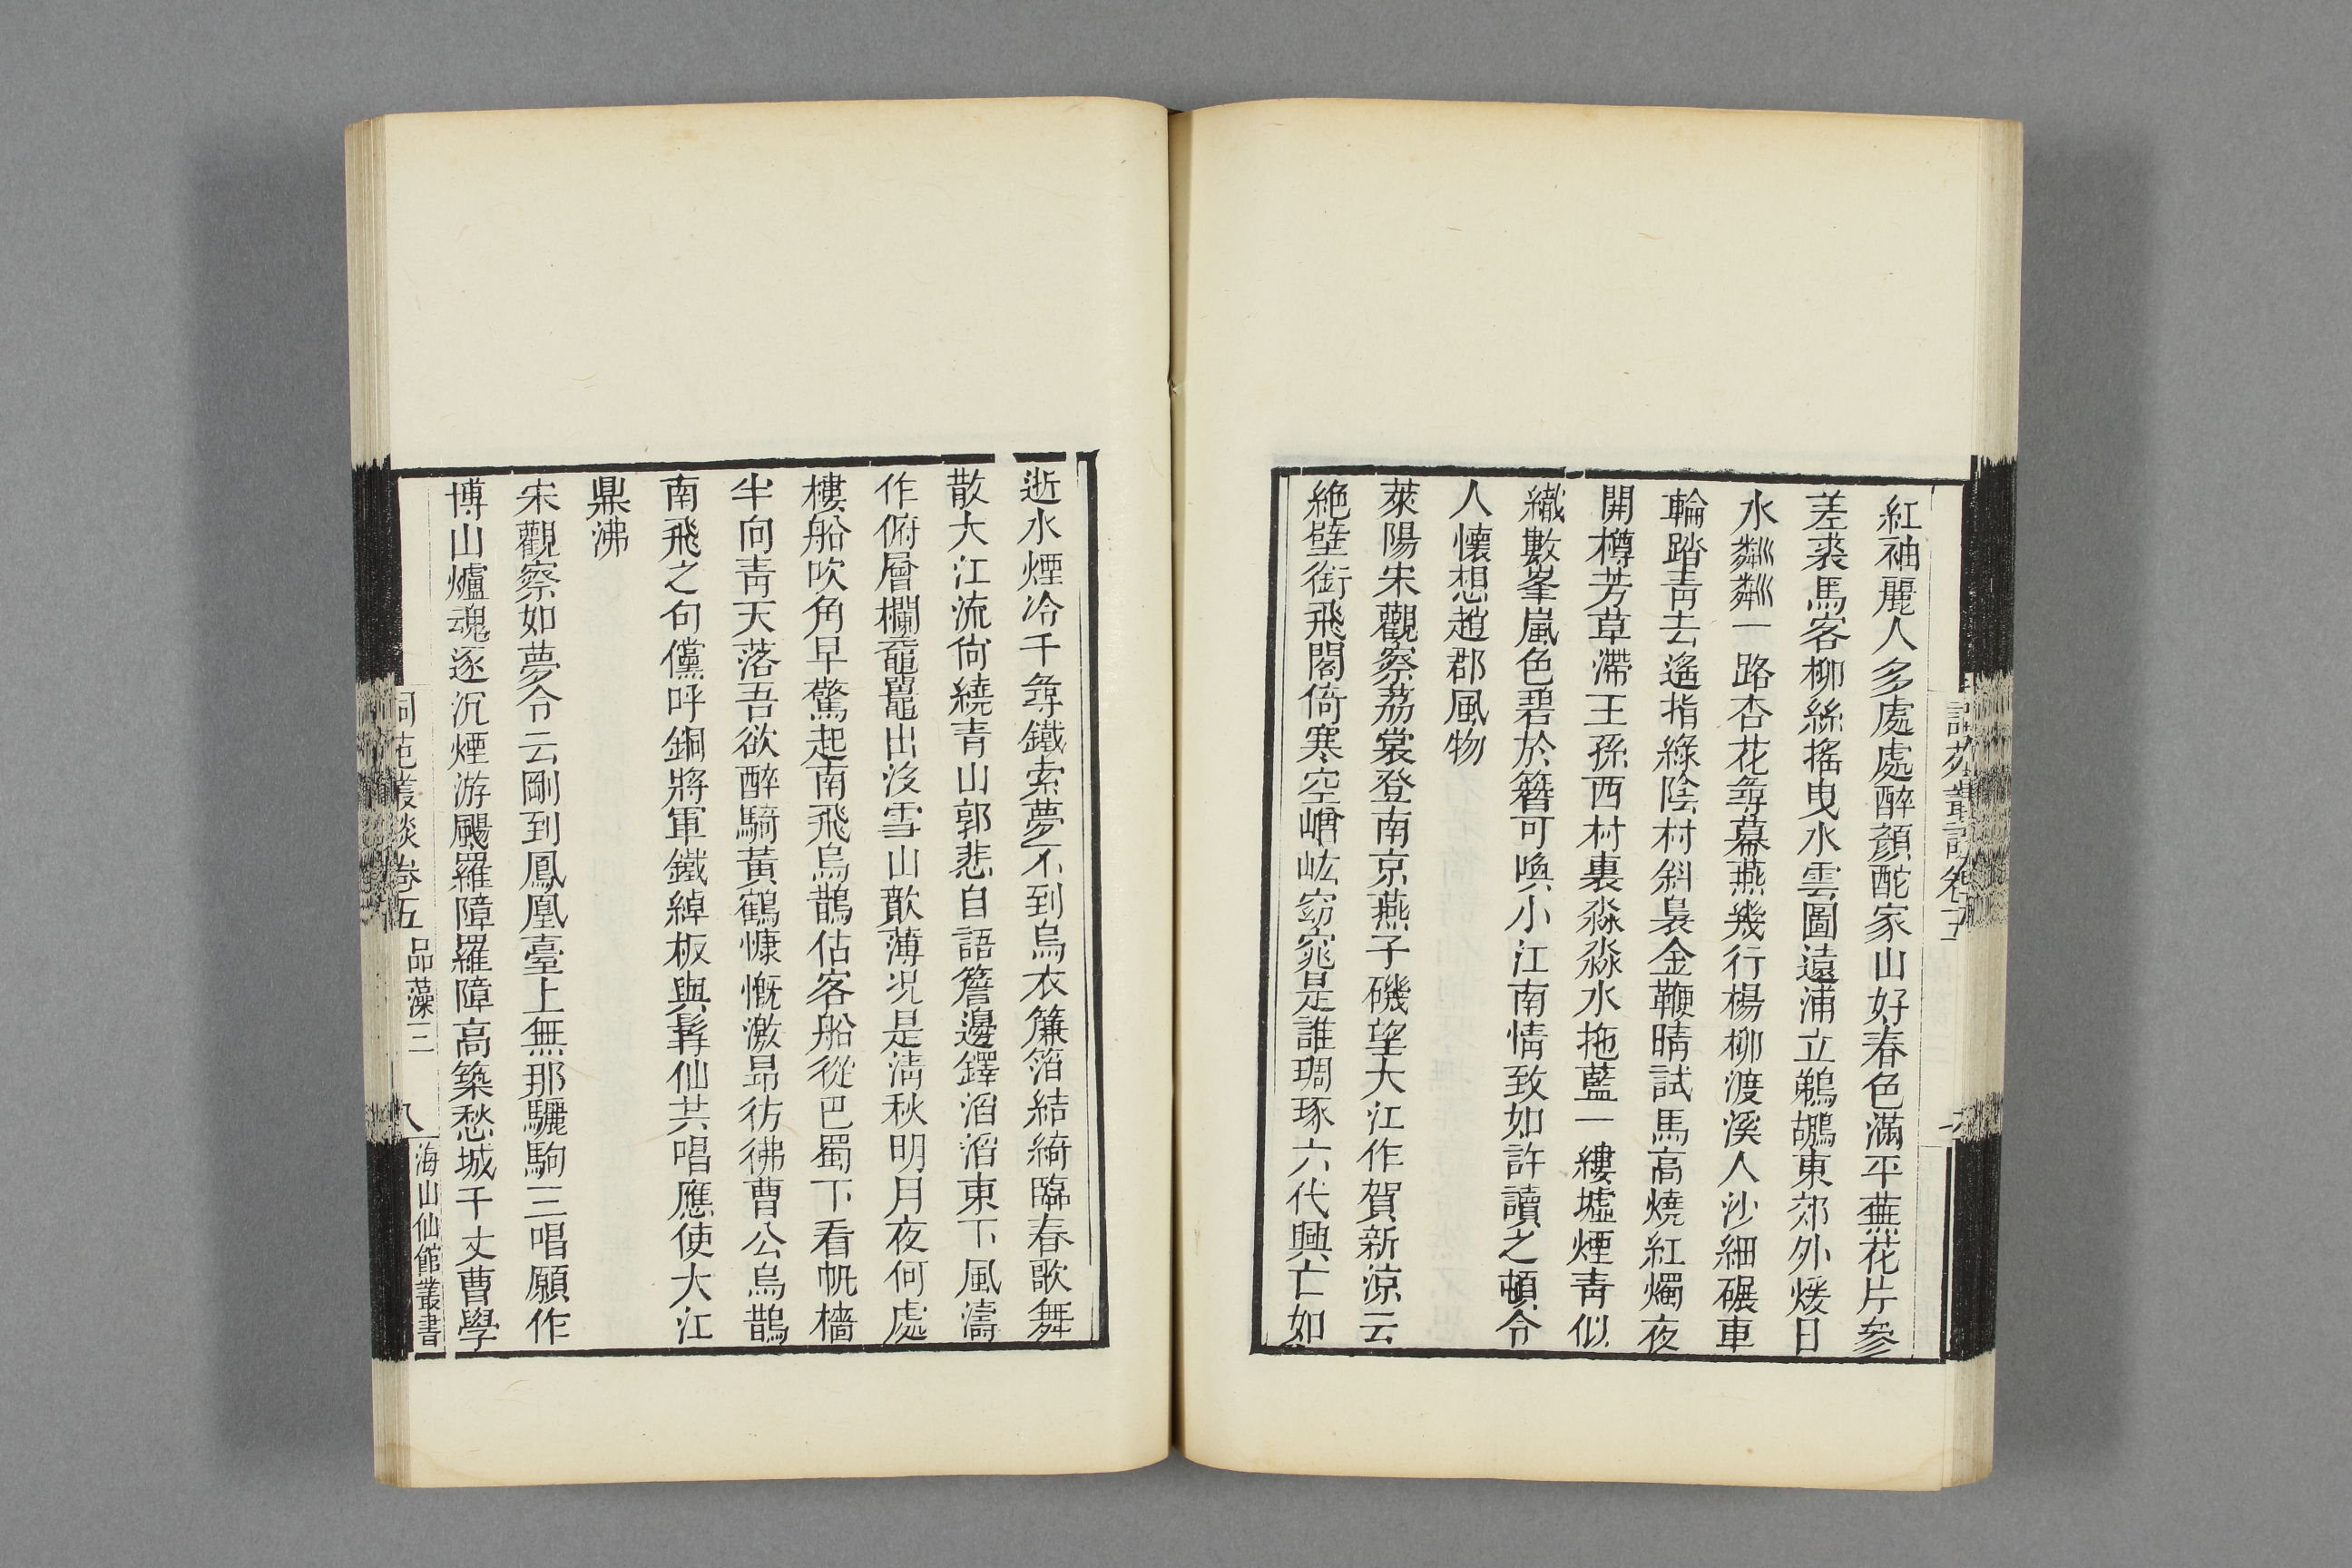 紅袖麗人多處處醉顏酡家山好春色滿平蕪花片參
差裘馬客柳絲搖曳水雲圖遠浦立鵜鶘東郊外煖日
水粼粼一路杏花尋幕燕幾行楊柳渡溪人沙細碾車
輪踏青去遙指綠陰村斜裊金鞭晴試馬高燒紅燭夜
開樽芳草滯王孫西村裏淼淼水拖藍一縷墟煙青似
織數峯嵐色碧於簪可喚小江南情致如許讀之頓令
人懷想趙郡風物
萊陽宋觀察荔裳登南京燕子磯望大江作賀新涼云
絶壁銜飛閣倚寒空嶒岹窈窕是誰琱琢六代興亡如
逝水煙冷千尋鐵索夢不到烏衣簾箔結綺臨春歌舞
散大江流尙繞青山郭悲自語簷邊鐸滔滔東下風濤
作俯層欄黿鼉出沒雪山歕薄况是清秋明月夜何處
樓船吹角早驚起南飛烏鵲估客船從巴蜀下看帆檣
半向青天落吾欲醉騎黃鶴慷慨激昻彷彿曹公烏鵲
南飛之句儻呼銅將軍鐵綽板與髯仙共唱應使大江
鼎沸
宋觀察如夢令云剛到鳳凰臺上無那驪駒三唱願作
博山爐魂逐沉煙游颺羅障羅障高築愁城千丈曹學
詞苑叢談卷五 品藻三 八 海山仙館叢書